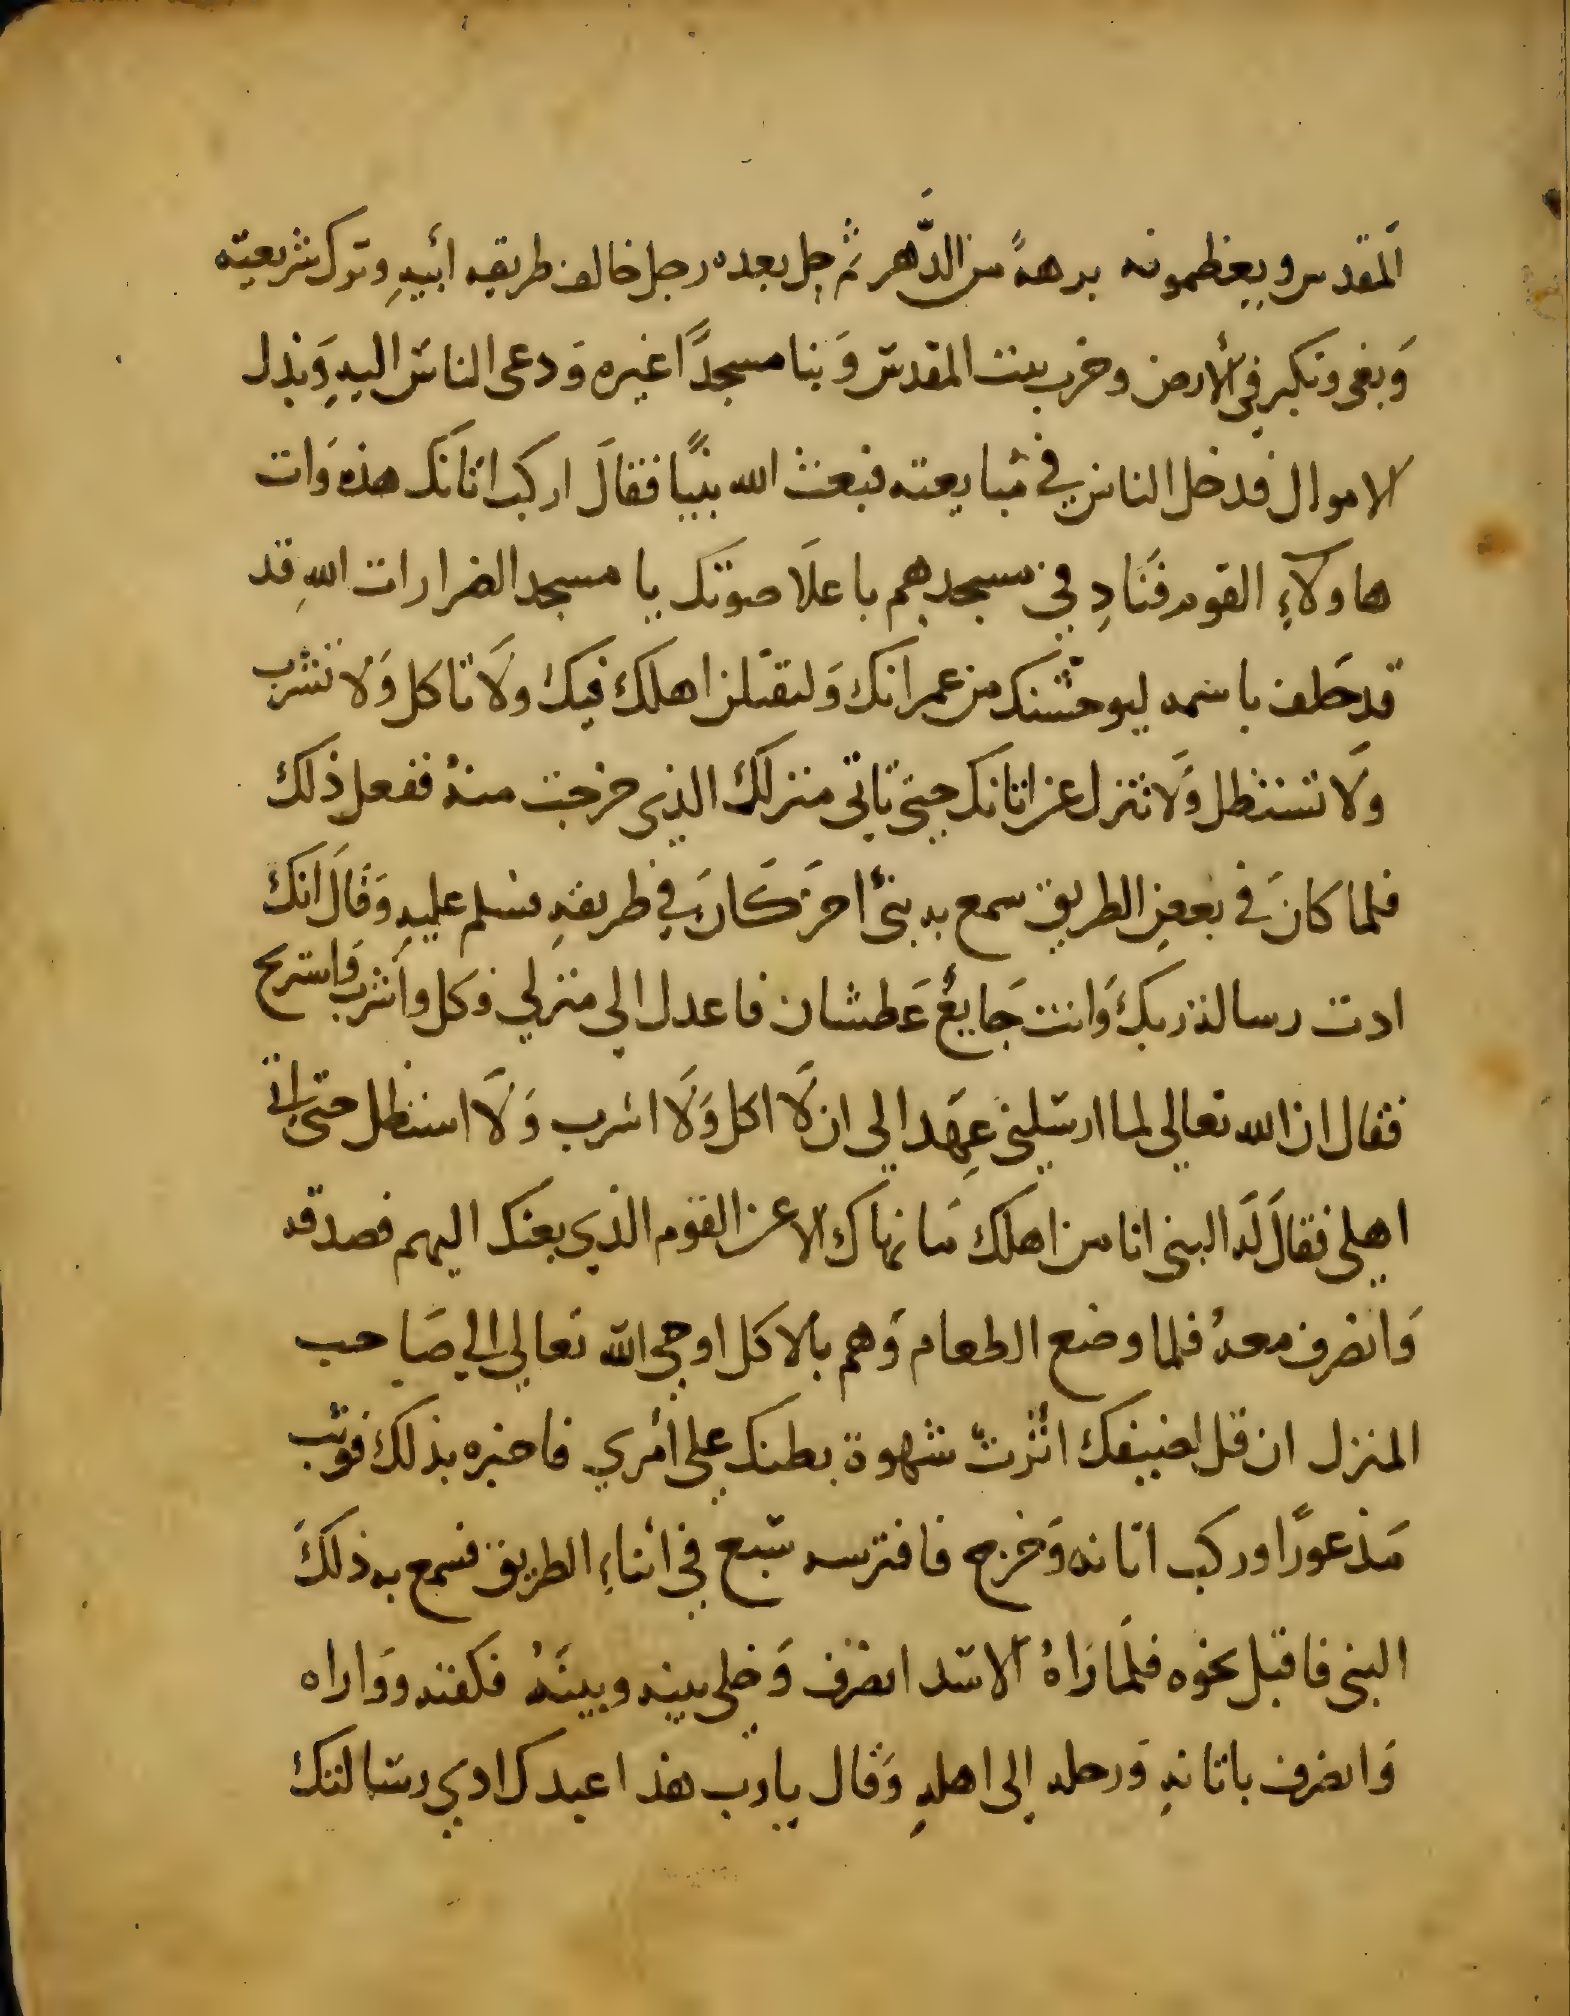 المقدس ويعظمونه برهةً من الدَّهر ثم جل بعده رجل خالف طريقه أبيهِ وترك شريعته
وَبغى وتكبر في الأرض وخرب بيت المقدس وَبنا مسجدًا غيره وَدعى الناس اليهِ وَبذل
الاموال فدخل الناس في مبايعته فبعث الله نبيًا فقالَ اركب اتانَك هذه وَات
هاولآءِ القوم فنَادِ في مسجدهم باعلَا صوتك يا مسجد الضرار ات اللهِ قد
قد حَلف باسمه ليوحشنك من عمرانك وَليقتلن اهلك فيك ولَا تاكل وَلا تشرب
ولَا تستظل وَلَا تنزل عن اتانك حتى تاتى منزلك الذي خرجت منهُ ففعل ذلك
فلما كانَ في بعض الطريق سمع به نبىٌ اخرَ كَانَ في طريقهِ فسلم عليهِ وَقالَ انَك
اديت رسالة ربكَ وَانت جَايعٌ عَطشان فاعدل الي منزلي وكل واشرب وَاسترح
فقال ان الله تعالي لما ارسلني عهَد الي ان لَا اكل وَلَا اشرب وَلَا استظل حتى اتي
اهلي فقالَ لَه النبي انا من اهلك مَا نهاك الا عن القوم الذي بعثك اليهم فصدقه
وَانصرف معهُ فلما وضع الطعام وَهم بالاكل اوحي الله تعالي الي صَاحب
المنزل ان قل لضيفك اثرتَ شهوة بطنك علي أمري فاخبره بذلك فوثب
مَذعورًا وركب اتانه وَخرج فافترسه سَبع في اثناءِ الطريق فسمع به ذلكَ
النبي فاقبل نحوه فلَما رَاهُ الاسَد انصرف وَخلي بينه وبينَهُ فكفنه ووَاراه
وَانصرف باتانهِ وَرحله إلى اهلهِ وَقال يا رب هذا عبدك ادي رسَالتك